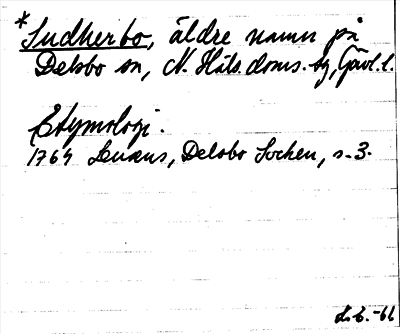 *Sudherbo, äldre namn på
Delsbo sn, N. Häls. doms. hg, Gävl. l.
Etymologi.
1764 Lenæus, Delsbo Sochen, s. 3.
L. E. -66